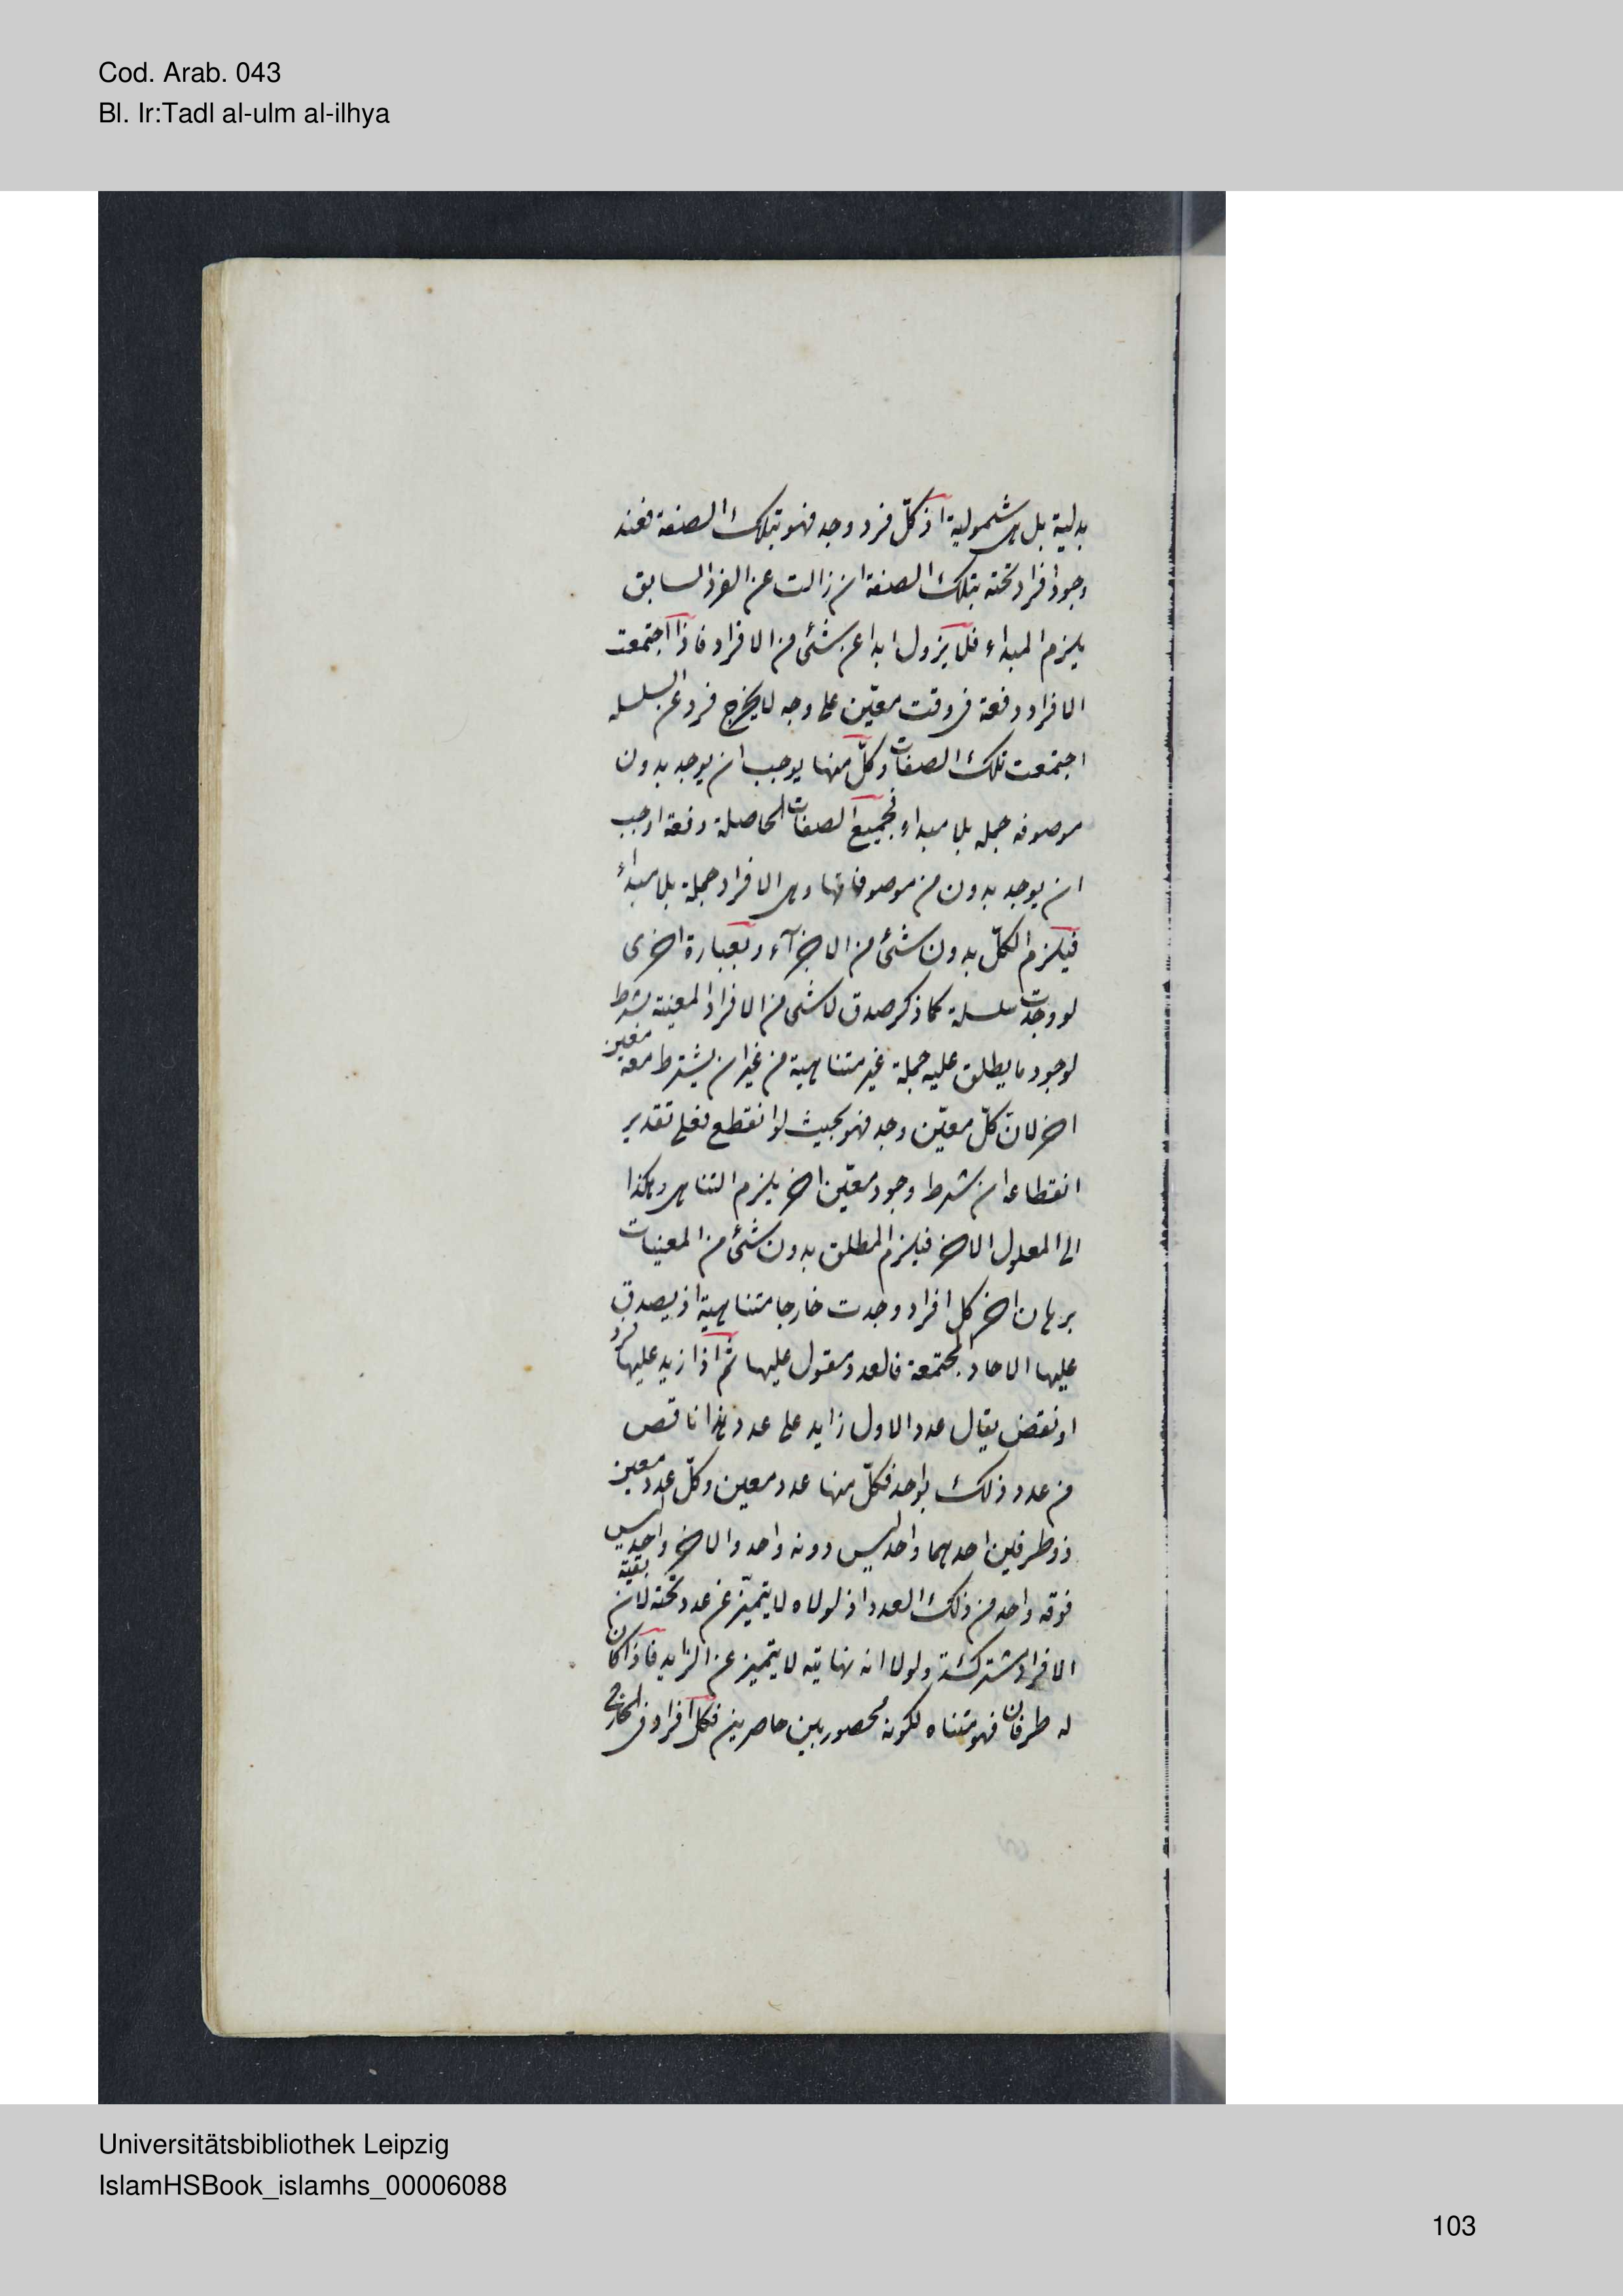 Cod. Arab. 043
Bl. Ir:Tadl al-ulm al-ilhya
بدلية بل هى شمولية اذ كلّ فرد وجد فهو بتلك الصفة فعند
وجود افراد تحته بتلك الصفة ان زالت عن الفرد السابق
يلزم المبداء فلا يزول ابدا عن شئ من الافراد فاذا اجتمعت
الافراد دفعة فى وقت معيّن على وجه لا يخرج فرد عن السلسله
اجتمعت تلك الصفات وكلّ منها يوجب ان يوجد بدون
موصوفه جمله بلا مبداء فجميع الصفات الحاصلة دفعة اوجب
ان يوجد بدون من موصوفاتها وهى الافراد جملة بلا مبداء
فيلزم الكلّ بدون شئ من الاجزآء وبعبارة اخرى
لو وجدت سلسلة كما ذكر صدق لا شئ من الافراد المعينة بشرط
لوجود ما يطلق عليه جملة غير متناهية من غير ان يشترط معه معين
اخر لانّ كلّ معيّن وجد فهو بحيث لو انقطع فعلى تقدير
انقطاعه ان شرط وجود معيّن اخر يلزم التناهى وهكذا
الى المعلول الاخر فيلزم المطلق بدون شئ من المعينات
برهان اخر كل افراد وجدت خارجا متناهية اذ يصدق
عليها الاحاد المجتمعة فالعدد مقول عليها ثم اذا زيد عليها فرد
او نقض يقال عدد الاول زايد على عدد هذا ناقص
من عدد ذلك بواحد فكلّ منها عدد معين وكلّ عدد معين
ذو طرفين احدهما واحد ليس دونه واحد والاخر واحد ليس
فوقه واحد من ذلك العدد اذ لولاه لا يتميّز عن عدد تحته لان بقية
الافراد مشتركة ولولا انه نهايته لا يتميز عن الزايد فاذا كان
له طرفان فهو متناه لكونه محصور بين حاصرين فكل افراد فى الخارج
Universitätsbibliothek Leipzig
IslamHSBook_islamhs_00006088
103